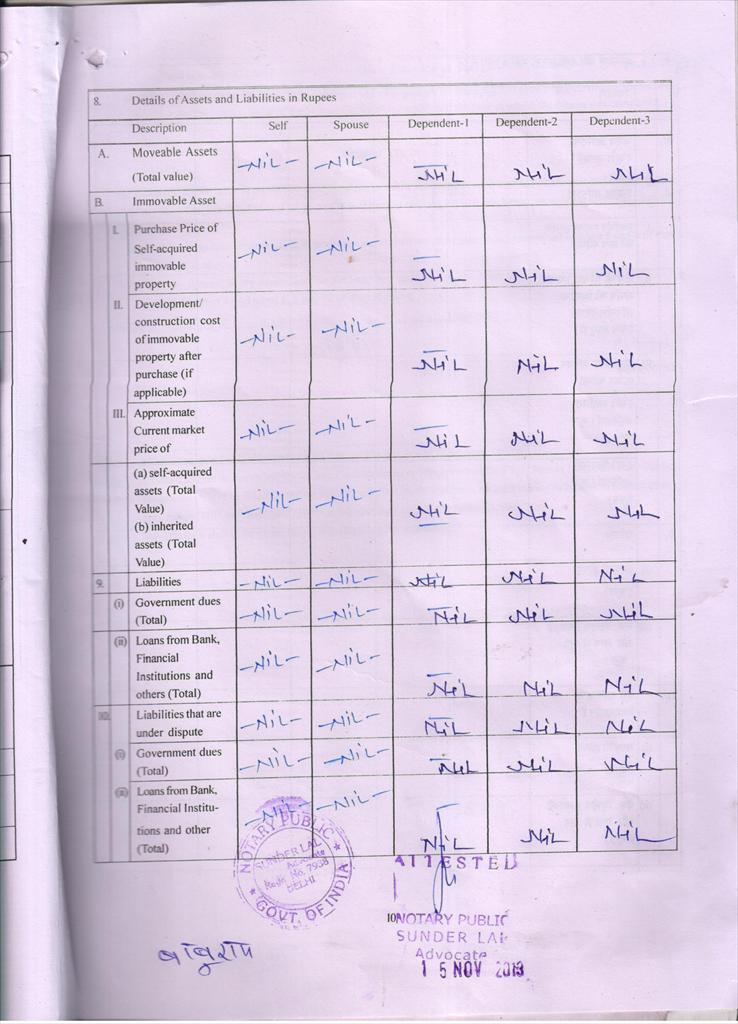 8. Details of Assets and Liabilities in Rupees
Description Self Spouse Dependent-1 Dependent-2 Dependent-3
A. Moveable Assets (Total value) -NiL- -NiL- NiL NiL NiL
B. Immovable Asset
I. Purchase Price of Self-acquired immovable property -NiL- -NiL- NiL NiL NiL
II. Development/ construction cost of immovable property after purchase (if applicable) -NiL- -NiL- NiL NiL NiL
III. Approximate Current market price of -NiL- -NiL- NiL NiL NiL
(a) self-acquired assets (Total Value) (b) inherited assets (Total Value) -NiL- -NiL- NiL NiL NiL
9. Liabilities -NiL- -NiL- NiL NiL NiL
(i) Government dues (Total) -NiL- -NiL- NiL NiL NiL
(ii) Loans from Bank, Financial Institutions and others (Total) -NiL- -NiL- NiL NiL NiL
10. Liabilities that are under dispute -NiL- -NiL- NiL NiL NiL
(i) Government dues (Total) -NiL- -NiL- NiL NiL NiL
(ii) Loans from Bank, Financial Institu- tions and other (Total) -NiL- -NiL- NiL NiL NiL
NOTARY PUBLIC
SUNDER LAL
Advocate
Regn. No. 7938
DELHI
GOVT. OF INDIA
ATTESTED
10
NOTARY PUBLIC
SUNDER LAL
Advocate
15 NOV 2013
बाबुराम